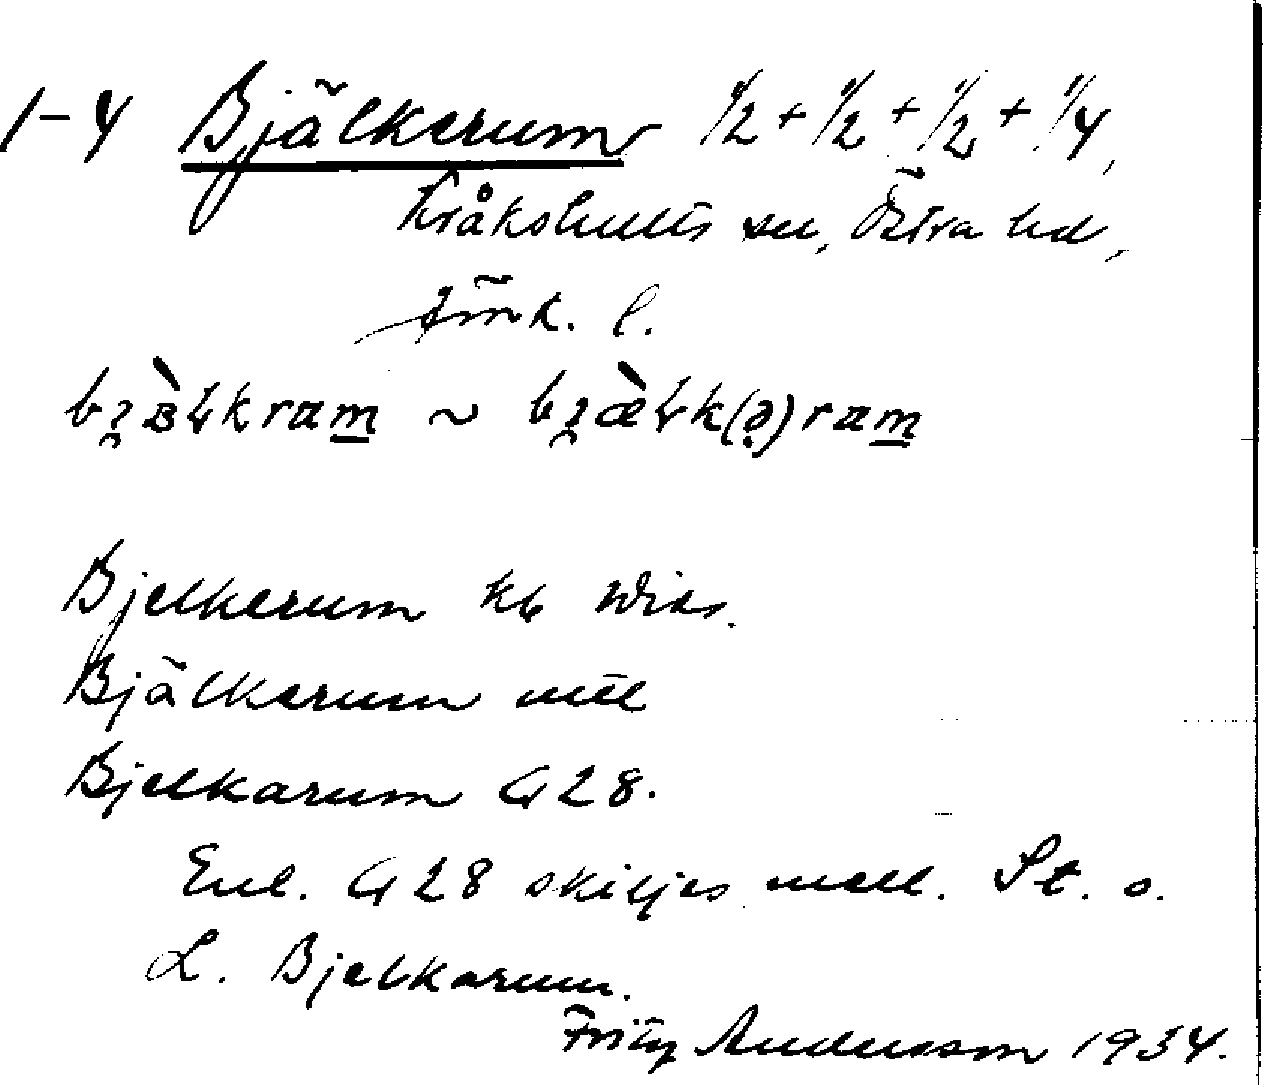 1-4 Bjälkerum 1/2 + 1/2 + 1/2 + 1/4,
Kråkshults sn, Östra hd,
Jönk. l.
Bjelkerum kb Wies.
Bjälkerum
Bjelkarum G 28.
Enl. G 28 skiljes mell. St. o.
L. Bjelkarum.
Fritz Andersson 1934.